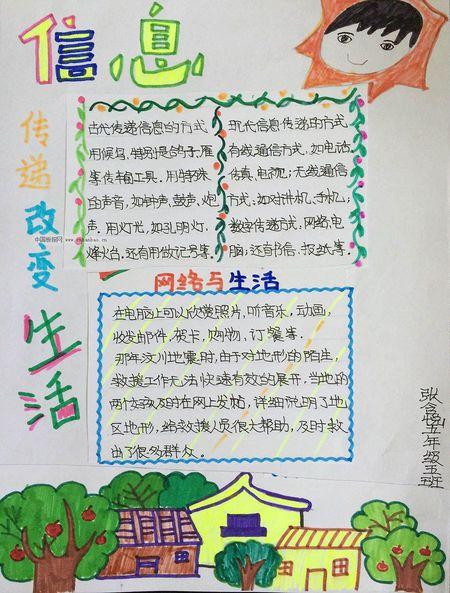 信息
传递
改变
生活
中国板报网 www.cnbanbao.cn
古代传递信息的方式
用候鸟,特别是鸽子,雁
等传输工具.用特殊
的声音,如钟声,鼓声,炮
声.用灯光,如孔明灯,
烽火台.还有用做记号等.
现代信息传递的方式
有线通信方式,如电话,
传真,电视;无线通信
方式,如对讲机,手机;
数字传递方式,网络,电
脑;还 信、报纸等.
网络与生活
在电脑上可以欣赏照片,听音乐,动画,
收发邮件,贺卡,购物,订餐等.
那年汶川地震时,由于对地形的陌生,
救援工作无法快速有效的展开,当地的
两个好 及时在网上发帖,详细说明了地
区地形,给救援人员很大帮助,及时救
出了很多群众.
张含 五年级五班